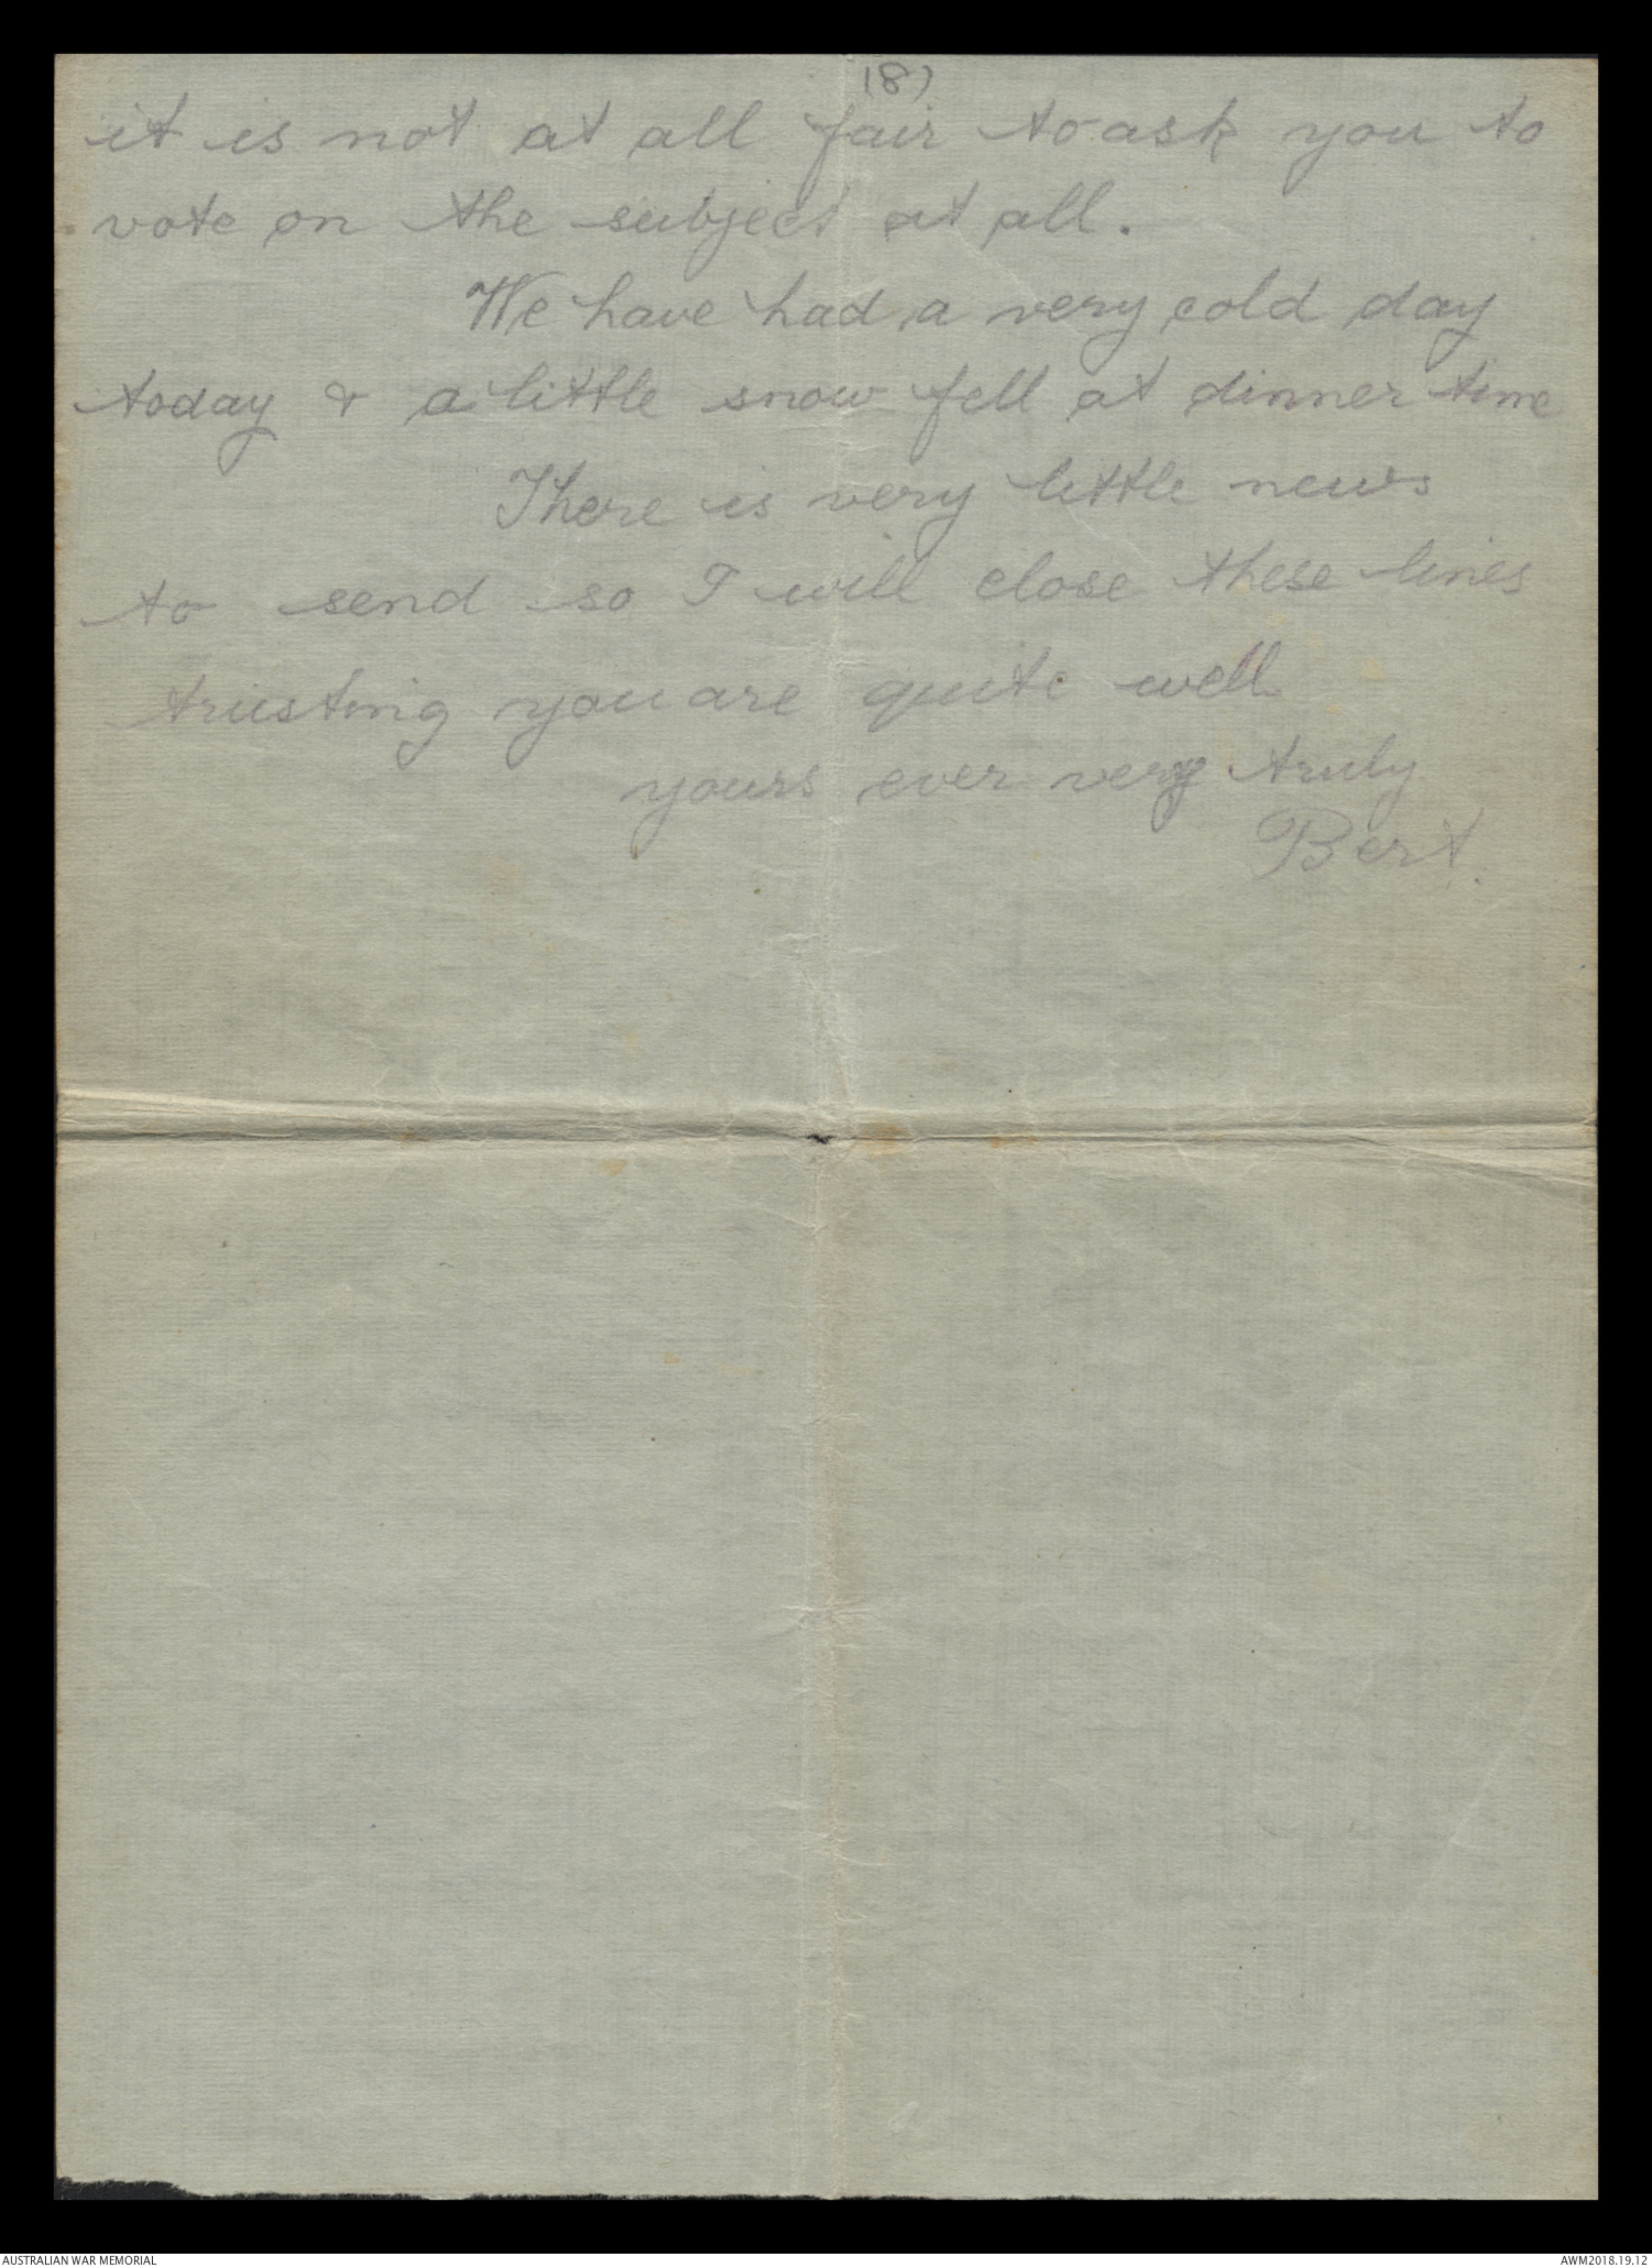 (8)
it is not at all fair to ask you to
vote on the subject at all.
We have had a very cold day
today & a little snow fell at dinner time
There is very little news
to send so I will close these lines
trusting you are quite well
yours ever very truly
Bert.
AUSTRALIAN WAR MEMORIAL
AWM2018.19.12